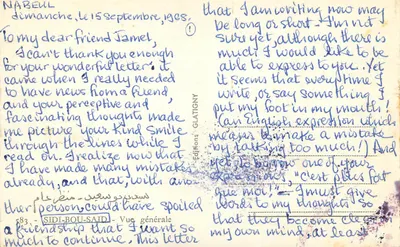 NABEUL
dimanche, le 15 septembre, 1985.
To my dear friend Jamel,
I can't thank you enough
for your wonderful letter: it
came when I really needed
to have news from a friend
and your perceptive and
fascinating thoughts made
me picture your kind smile
through the lines while I
read on. I realize now that
I have made many mistakes
already, and that, with ano-
ther person could have spoiled
a friendship that I want so
much to continue. This letter
①
GLATIGNY
583 - SIDI-BOU-SAID - Vue générale
that I am writing now may
be long or short - I'm not
sure yet, although there is
much I would like to be
able to express to you. Yet
it seems that every time I
write, or say something I
put my foot in my mouth!
(an English expression which
means to make a mistake
by talking too much!) And
yet, to borrow one of your
expressions, "C'est plus fort
que moi!" - I must give
words to my thoughts so
that they become clear
my own mind, at least